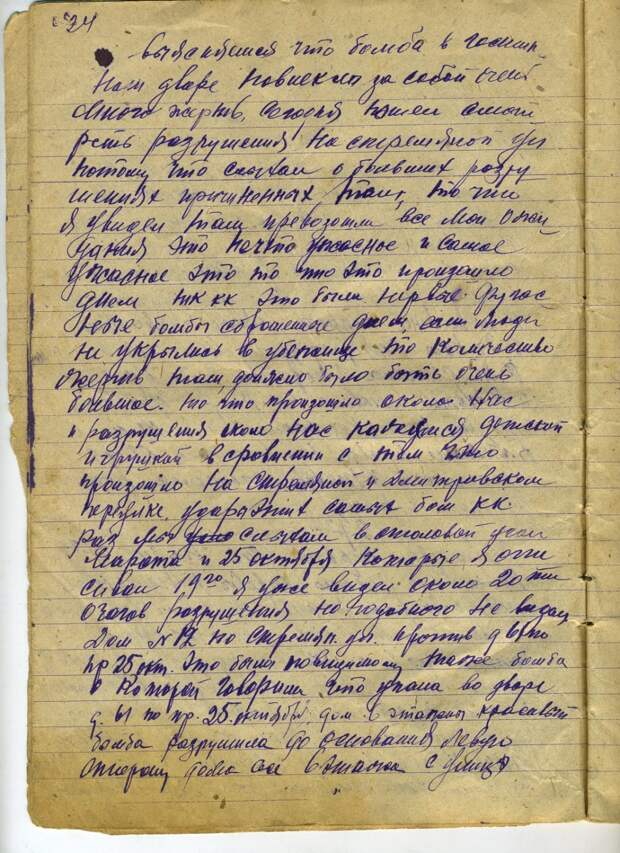 74
выясняется что бомба в гостин
ном дворе повлекла за собой очень
много жертв, сегодня пошел смот
реть разрушения на стремянной ул
потому что слыхал о больших разру
шениях причиненных там, то что
я увидел там превозошли все мои ожи
дания это нечто ужасное и самое
ужасное это то что это произошло
днем т.к. это были первые фугас
ные бомбы сброшенные днем, если люди
не укрылись в убежище то количество
жертв там должно было быть очень
большое. то что произошло около нас
и разрушения около нас кажутся детской
игрушкой в сравнении с тем что
произошло на Стремянной и Дмитровском
переулке, удары этих самых бом кк
раз мы слыхали в столовой угол
Марата и 25 октября которые я опи
сывал 19го я уже видел около 20ти
очагов разрушения но подобного не видал
Дом № 12 по Стремян. ул. против д
пр 25 окт. Это была повидимому таже бомба
о которой говорили что упала во дворе
д. 61 по пр. 25 октября, дом в этажа красивый
бомба разрушила до основания левую
сторону дома все этажи с улицы